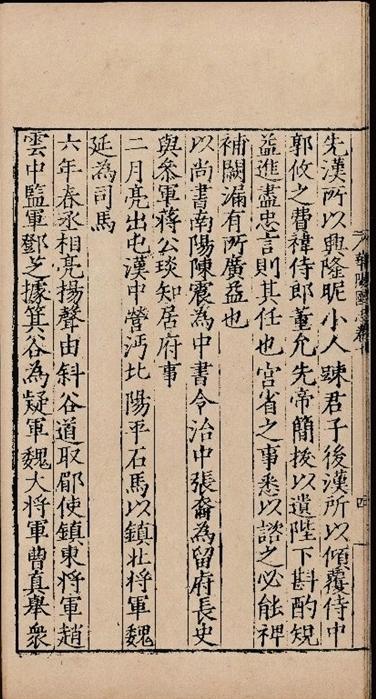 華陽國志卷
四
先漢所以興隆昵小人踈君子後漢所以傾覆侍中
郭攸之費禕侍郎董允先帝簡拔以遺陛下斟酌規
益進盡忠言則其任也宮省之事悉以諮之必能裨
補闕漏有所廣益也
以尚書南陽陳震為中書令治中張裔為留府長史
與參軍蔣公琰知居府事
二月亮出屯漢中營沔北陽平石馬以鎮北將軍魏
延為司馬
六年春丞相亮揚聲由斜谷道取郿使鎮東將軍趙
雲中監軍鄧芝據箕谷為疑軍魏大將軍曹真舉衆